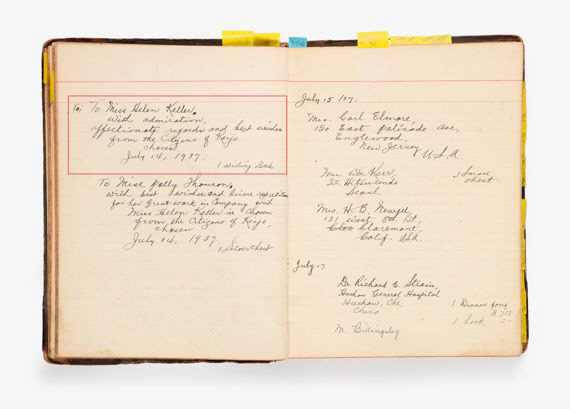 To Miss Helen Keller,
with admiration,
affectionate regards and best wishes
from the Citizens of Keijo
chosen
July 14, 1937.
1 Writing Desk
To Miss Polly Thomson,
with best wishes and sincere appreciation
for her great work in Company with
Miss Helen Keller in chosen
from the Citizens of Keijo,
chosen
July 14, 1937
1, Silver chest
July 15 /37.
Mrs. Carl Elmore,
150 East Palisade Ave,
Englewood,
New Jersey
U.S.A
Mrs. Wm Kerr,
32
Seoul
3 Small
chest
Mrs. H. B. Newell
131 West 8th St,
Claremont,
Calif. USA.
July 17
Dr. Richard E. Strain,
General Hospital
China
1 Dinner gong
1 hook
M.